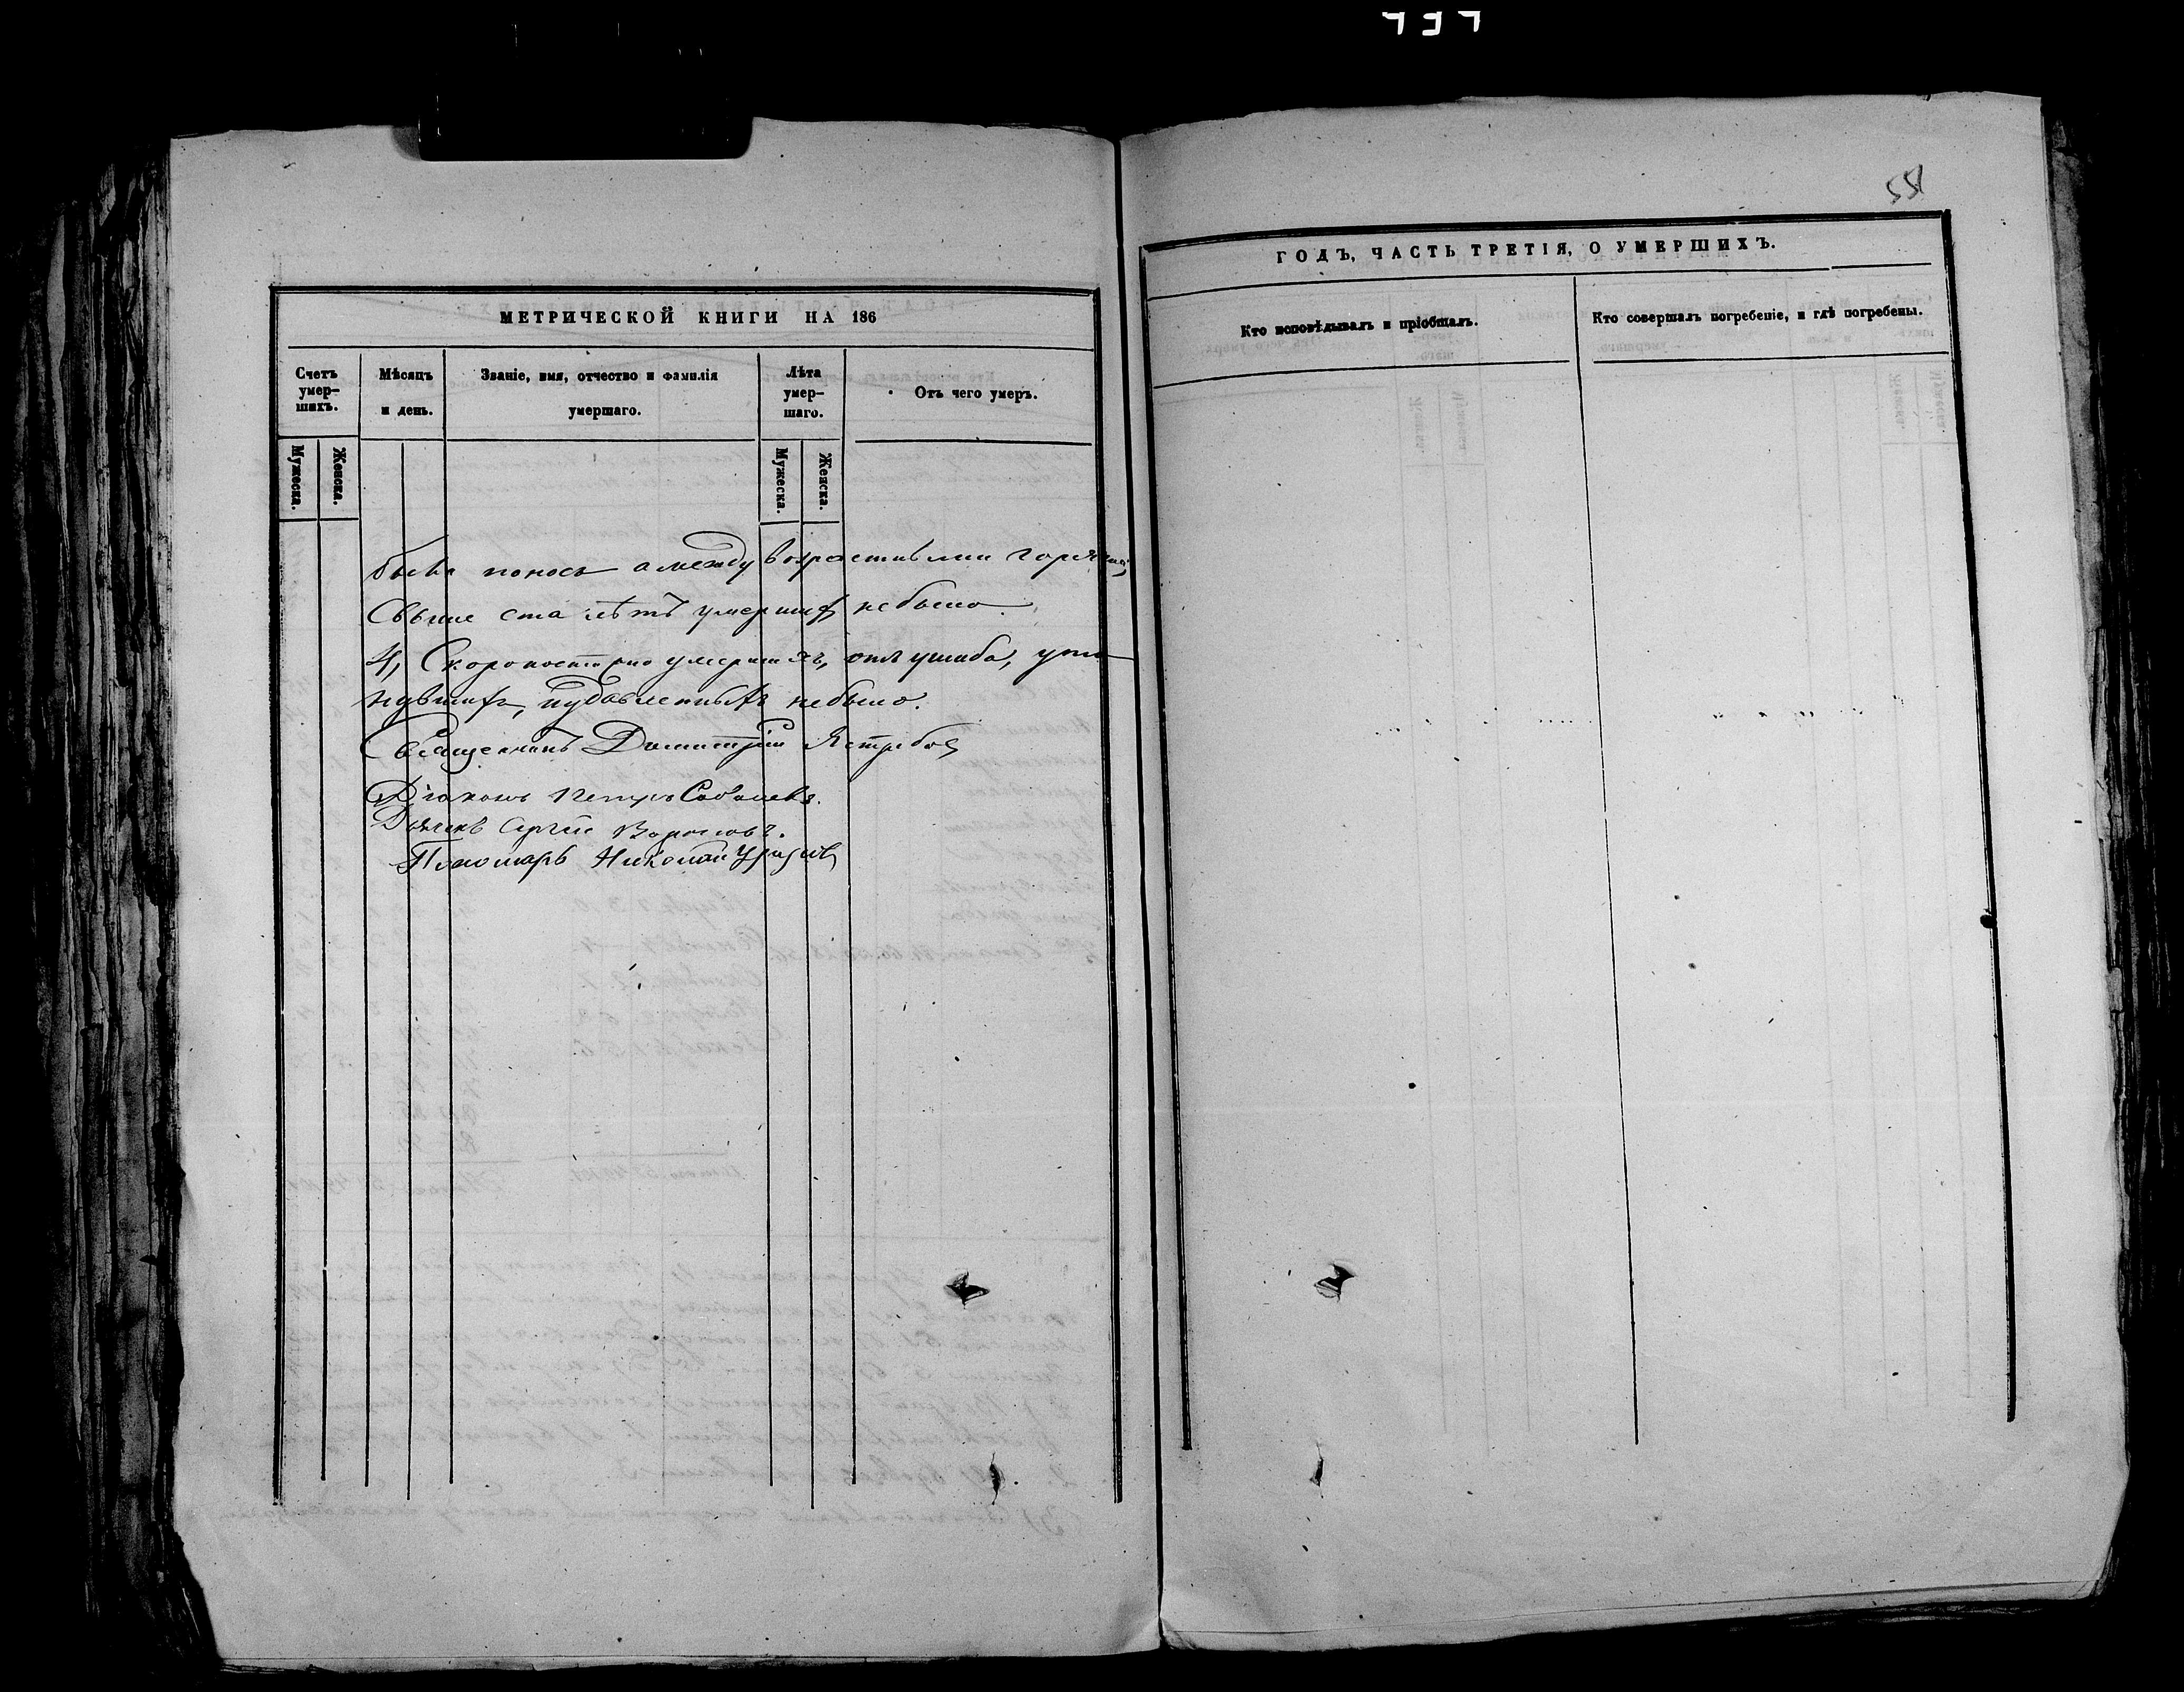 551
МЕТРИЧЕСКОЙ КНИГИ НА 186
Счетъ умер-
шихъ.
Мужеска.
Женска.
Мѣсяцъ
и день.
Званіе, имя, отчество и фамилія
умершаго.
Лѣта
умер-
шаго.
Мужеска.
Женска.
Отъ чего умеръ.
былъ поносъ а между возрастными горячка,
Свыше ста лѣтъ умершихъ небыло.
4, Скоропостижно умершихъ, отъ ушиба, уто-
нувшихъ, и удавленныхъ небыло.
Священникъ Димитрій Ястребовъ
Діаконъ Петръ Соболевъ.
Дьячекъ Сергій Вороновъ.
Пономарь Николай
ГОДЪ, ЧАСТЬ ТРЕТІЯ, О УМЕРШИХЪ.
Кто исповѣдывалъ и пріобщалъ.
Кто совершалъ погребеніе, и гдѣ погребены.